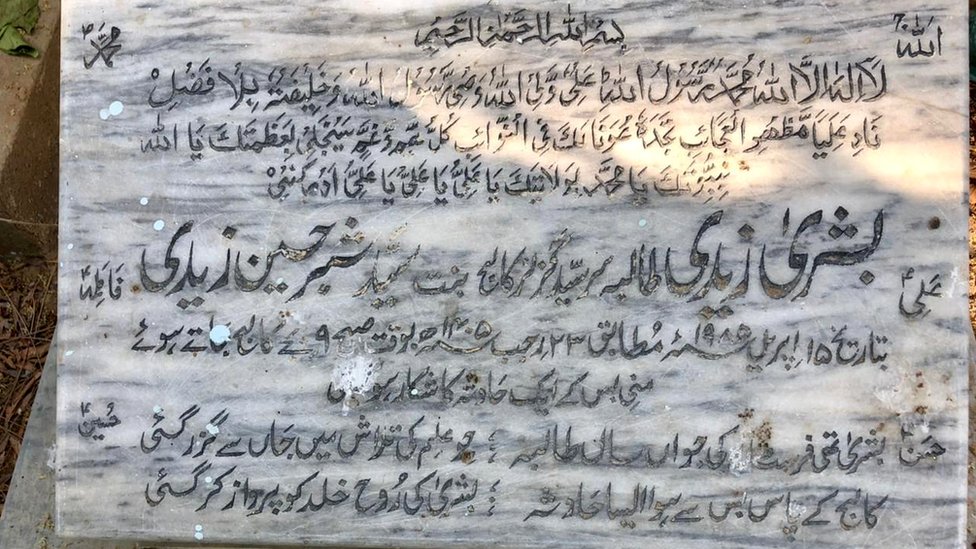 بِسْمِ اللهِ الرَّحْمٰنِ الرَّحِيْمِ
اللهُ
محمدؐ
لَا اِلٰهَ اِلَّا اللهُ مُحَمَّدٌ رَّسُوْلُ اللهِ عَلِىٌّ وَّلِىُّ اللهِ وَصِىُّ رَسُوْلِ اللهِ وَخَلِيْفَتُهٗ بِلَا فَصْلٍ
نَادِ عَلِيًّا مَّظْهَرَ الْعَجَائِبِ تَجِدْهُ عَوْنًا لَّكَ فِى النَّوَائِبِ كُلُّ هَمٍّ وَّغَمٍّ سَيَنْجَلِىْ بِعَظَمَتِكَ يَا اللهُ
بِنُبُوَّتِكَ يَا مُحَمَّدُ بِوِلَايَتِكَ يَا عَلِىُّ يَا عَلِىُّ يَا عَلِىُّ اَدْرِكْنِىْ
بشریٰ زیدی طالبہ سرسید گرلز کالج بنت سید شبر حسین زیدی
علیؑ
فاطمہؑ
بتاریخ ۱۵ اپریل ۱۹۸۵ء مُطابق ۲۳ رجب ۱۴۰۵ھ بوقت صبح ۹ بجے کالج جاتے ہوئے
منی بس کے ایک حادثہ کا شکار ہوئی
حسنؑ
حسینؑ
بشریٰ تھی کی جواں سال طالبہ ؛ جو علم کی تلاش میں جاں سے گزر گئی
کالج کے پاس بس سے ہوا ایسا حادثہ ؛ بشریٰ کی رُوح خلد کو پرواز کر گئی